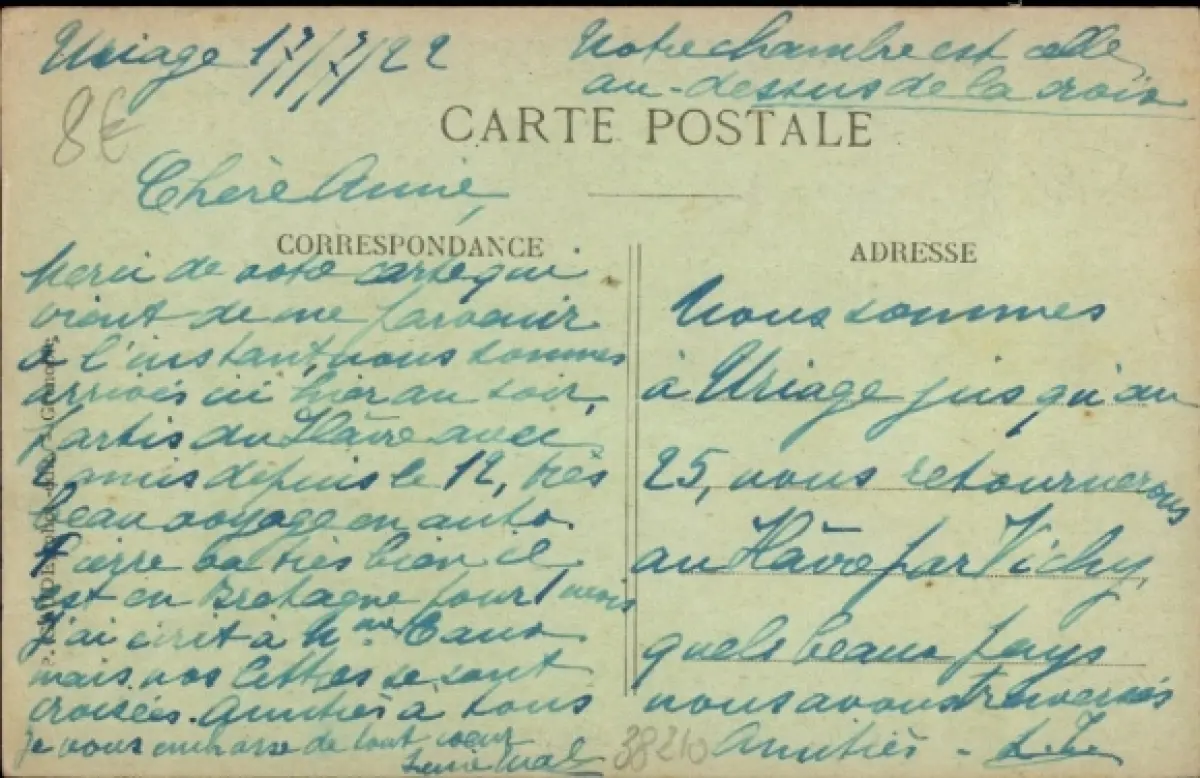 Uriage 17/7/22
Notre chambre est celle
au-dessus de la croix
8€
CARTE POSTALE
Chère Annie,
CORRESPONDANCE
Merci de votre carte qui
vient de me parvenir
à l'instant, nous sommes
arrivés ici hier au soir,
partis du Hâvre avec
2 amis depuis le 12, très
beau voyage en auto.
Pierre va très bien il
est en Bretagne pour 1 mois
J'ai écrit à Mme
mais nos lettres se sont
croisées. Amitiés à tous
Je vous embrasse de tout coeur
ADRESSE
Nous sommes
à Uriage jusqu'au
25, nous retournerons
au Hâvre par Vichy,
quels beaux pays
nous avons traversés
Amitiés -
38210